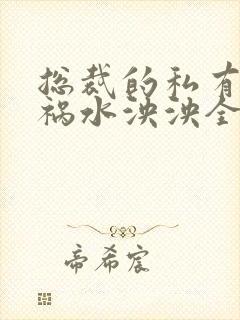 总裁的私有
祸水泱泱全
帝希宸